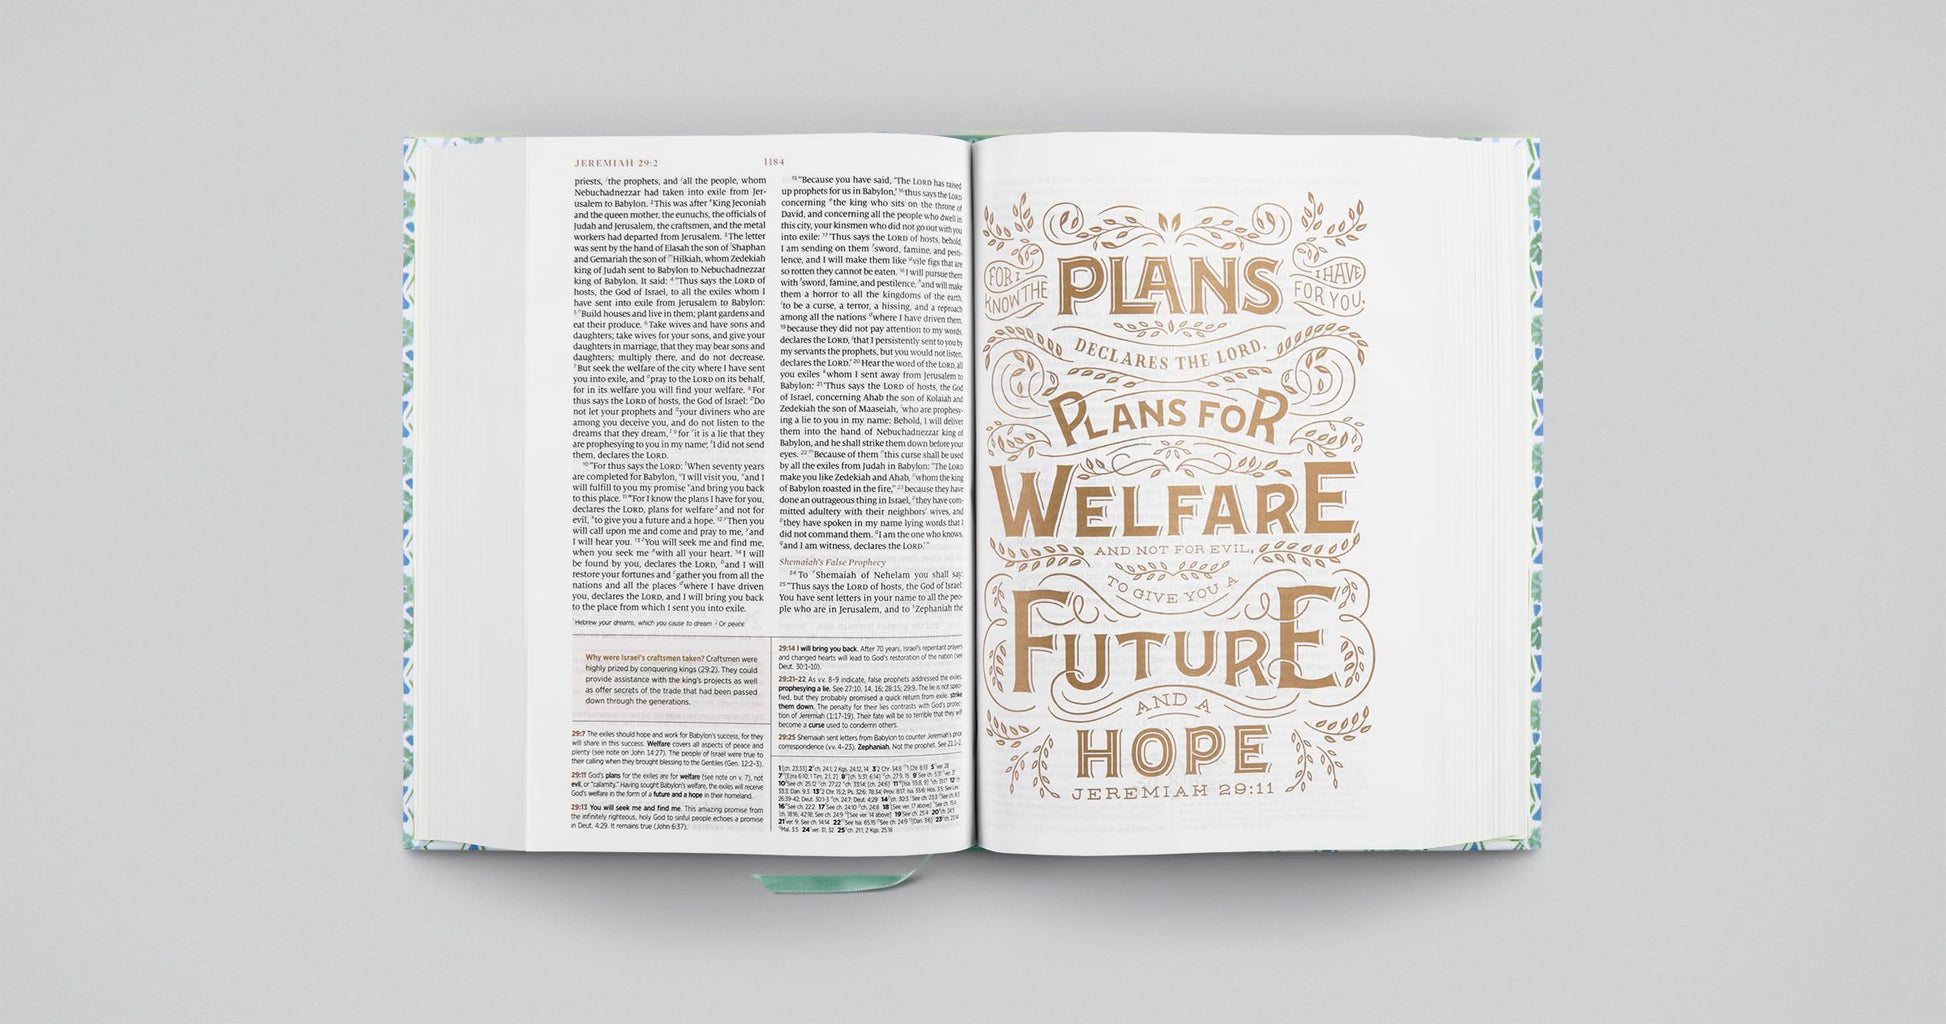 JEREMIAH 29:2
1184
priests, the prophets, and all the people, whom
Nebuchadnezzar had taken into exile from Jer-
usalem to Babylon. 2 This was after King Jeconiah
and the queen mother, the eunuchs, the officials of
Judah and Jerusalem, the craftsmen, and the metal
workers had departed from Jerusalem. 3 The letter
was sent by the hand of Elasah the son of Shaphan
and Gemariah the son of Hilkiah, whom Zedekiah
king of Judah sent to Babylon to Nebuchadnezzar
king of Babylon. It said: 4 “Thus says the LORD of
hosts, the God of Israel, to all the exiles whom I
have sent into exile from Jerusalem to Babylon:
5 “Build houses and live in them; plant gardens and
eat their produce. 6 Take wives and have sons and
daughters; take wives for your sons, and give your
daughters in marriage, that they may bear sons and
daughters; multiply there, and do not decrease.
7 But seek the welfare of the city where I have sent
you into exile, and pray to the LORD on its behalf,
for in its welfare you will find your welfare. 8 For
thus says the LORD of hosts, the God of Israel: Do
not let your prophets and your diviners who are
among you deceive you, and do not listen to the
dreams that they dream, 1 9 for it is a lie that they
are prophesying to you in my name; I did not send
them, declares the LORD.
10 “For thus says the LORD: When seventy years
are completed for Babylon, I will visit you, and I
will fulfill to you my promise and bring you back
to this place. 11 “For I know the plans I have for you,
declares the LORD, plans for welfare 2 and not for
evil, to give you a future and a hope. 12 Then you
will call upon me and come and pray to me, and
I will hear you. 13 You will seek me and find me,
when you seek me with all your heart. 14 I will
be found by you, declares the LORD, and I will
restore your fortunes and gather you from all the
nations and all the places where I have driven
you, declares the LORD, and I will bring you back
to the place from which I sent you into exile.
1 Hebrew your dreams, which you cause to dream 2 Or peace
15 “Because you have said, ‘The LORD has raised
up prophets for us in Babylon,’ 16 thus says the LORD
concerning the king who sits on the throne of
David, and concerning all the people who dwell in
this city, your kinsmen who did not go out with you
into exile: 17 ‘Thus says the LORD of hosts, behold,
I am sending on them sword, famine, and pesti-
lence, and I will make them like vile figs that are
so rotten they cannot be eaten. 18 I will pursue them
with sword, famine, and pestilence, and will make
them a horror to all the kingdoms of the earth,
to be a curse, a terror, a hissing, and a reproach
among all the nations where I have driven them,
19 because they did not pay attention to my words,
declares the LORD, that I persistently sent to you by
my servants the prophets, but you would not listen,
declares the LORD.’ 20 Hear the word of the LORD, all
you exiles whom I sent away from Jerusalem to
Babylon: 21 ‘Thus says the LORD of hosts, the God
of Israel, concerning Ahab the son of Kolaiah and
Zedekiah the son of Maaseiah, who are prophesy-
ing a lie to you in my name: Behold, I will deliver
them into the hand of Nebuchadnezzar king of
Babylon, and he shall strike them down before your
eyes. 22 Because of them this curse shall be used
by all the exiles from Judah in Babylon: “The LORD
make you like Zedekiah and Ahab, whom the king
of Babylon roasted in the fire,” 23 because they have
done an outrageous thing in Israel, they have com-
mitted adultery with their neighbors’ wives, and
they have spoken in my name lying words that I
did not command them. I am the one who knows,
and I am witness, declares the LORD.’”
Shemaiah’s False Prophecy
24 To Shemaiah of Nehelam you shall say:
25 “Thus says the LORD of hosts, the God of Israel:
You have sent letters in your name to all the peo-
ple who are in Jerusalem, and to Zephaniah the
Why were Israel’s craftsmen taken? Craftsmen were
highly prized by conquering kings (29:2). They could
provide assistance with the king’s projects as well
as offer secrets of the trade that had been passed
down through the generations.
29:7 The exiles should hope and work for Babylon’s success, for they
will share in this success. Welfare covers all aspects of peace and
plenty (see note on John 14:27). The people of Israel were true to
their calling when they brought blessing to the Gentiles (Gen. 12:2–3).
29:11 God’s plans for the exiles are for welfare (see note on v. 7), not
evil, or “calamity.” Having sought Babylon’s welfare, the exiles will receive
God’s welfare in the form of a future and a hope in their homeland.
29:13 You will seek me and find me. This amazing promise from
the infinitely righteous, holy God to sinful people echoes a promise
in Deut. 4:29. It remains true (John 6:37).
29:14 I will bring you back. After 70 years, Israel’s repentant prayers
and changed hearts will lead to God’s restoration of the nation (see
Deut. 30:1–10).
29:21–22 As vv. 8–9 indicate, false prophets addressed the exiles.
prophesying a lie. See 27:10, 14, 16; 28:15; 29:9. The lie is not speci-
fied, but they probably promised a quick return from exile. strike
them down. The penalty for their lies contrasts with God’s protec-
tion of Jeremiah (1:17–19). Their fate will be so terrible that they will
become a curse used to condemn others.
29:25 Shemaiah sent letters from Babylon to counter Jeremiah’s prior
correspondence (vv. 4–23). Zephaniah. Not the prophet. See 21:1–2.
FOR I
KNOW THE
PLANS
I HAVE
FOR YOU,
DECLARES THE LORD,
PLANS FOR
WELFARE
AND NOT FOR EVIL,
TO GIVE YOU A
FUTURE
AND A
HOPE
JEREMIAH 29:11